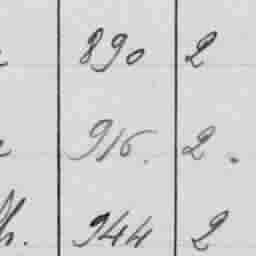 890 2
916. 2.
944 2